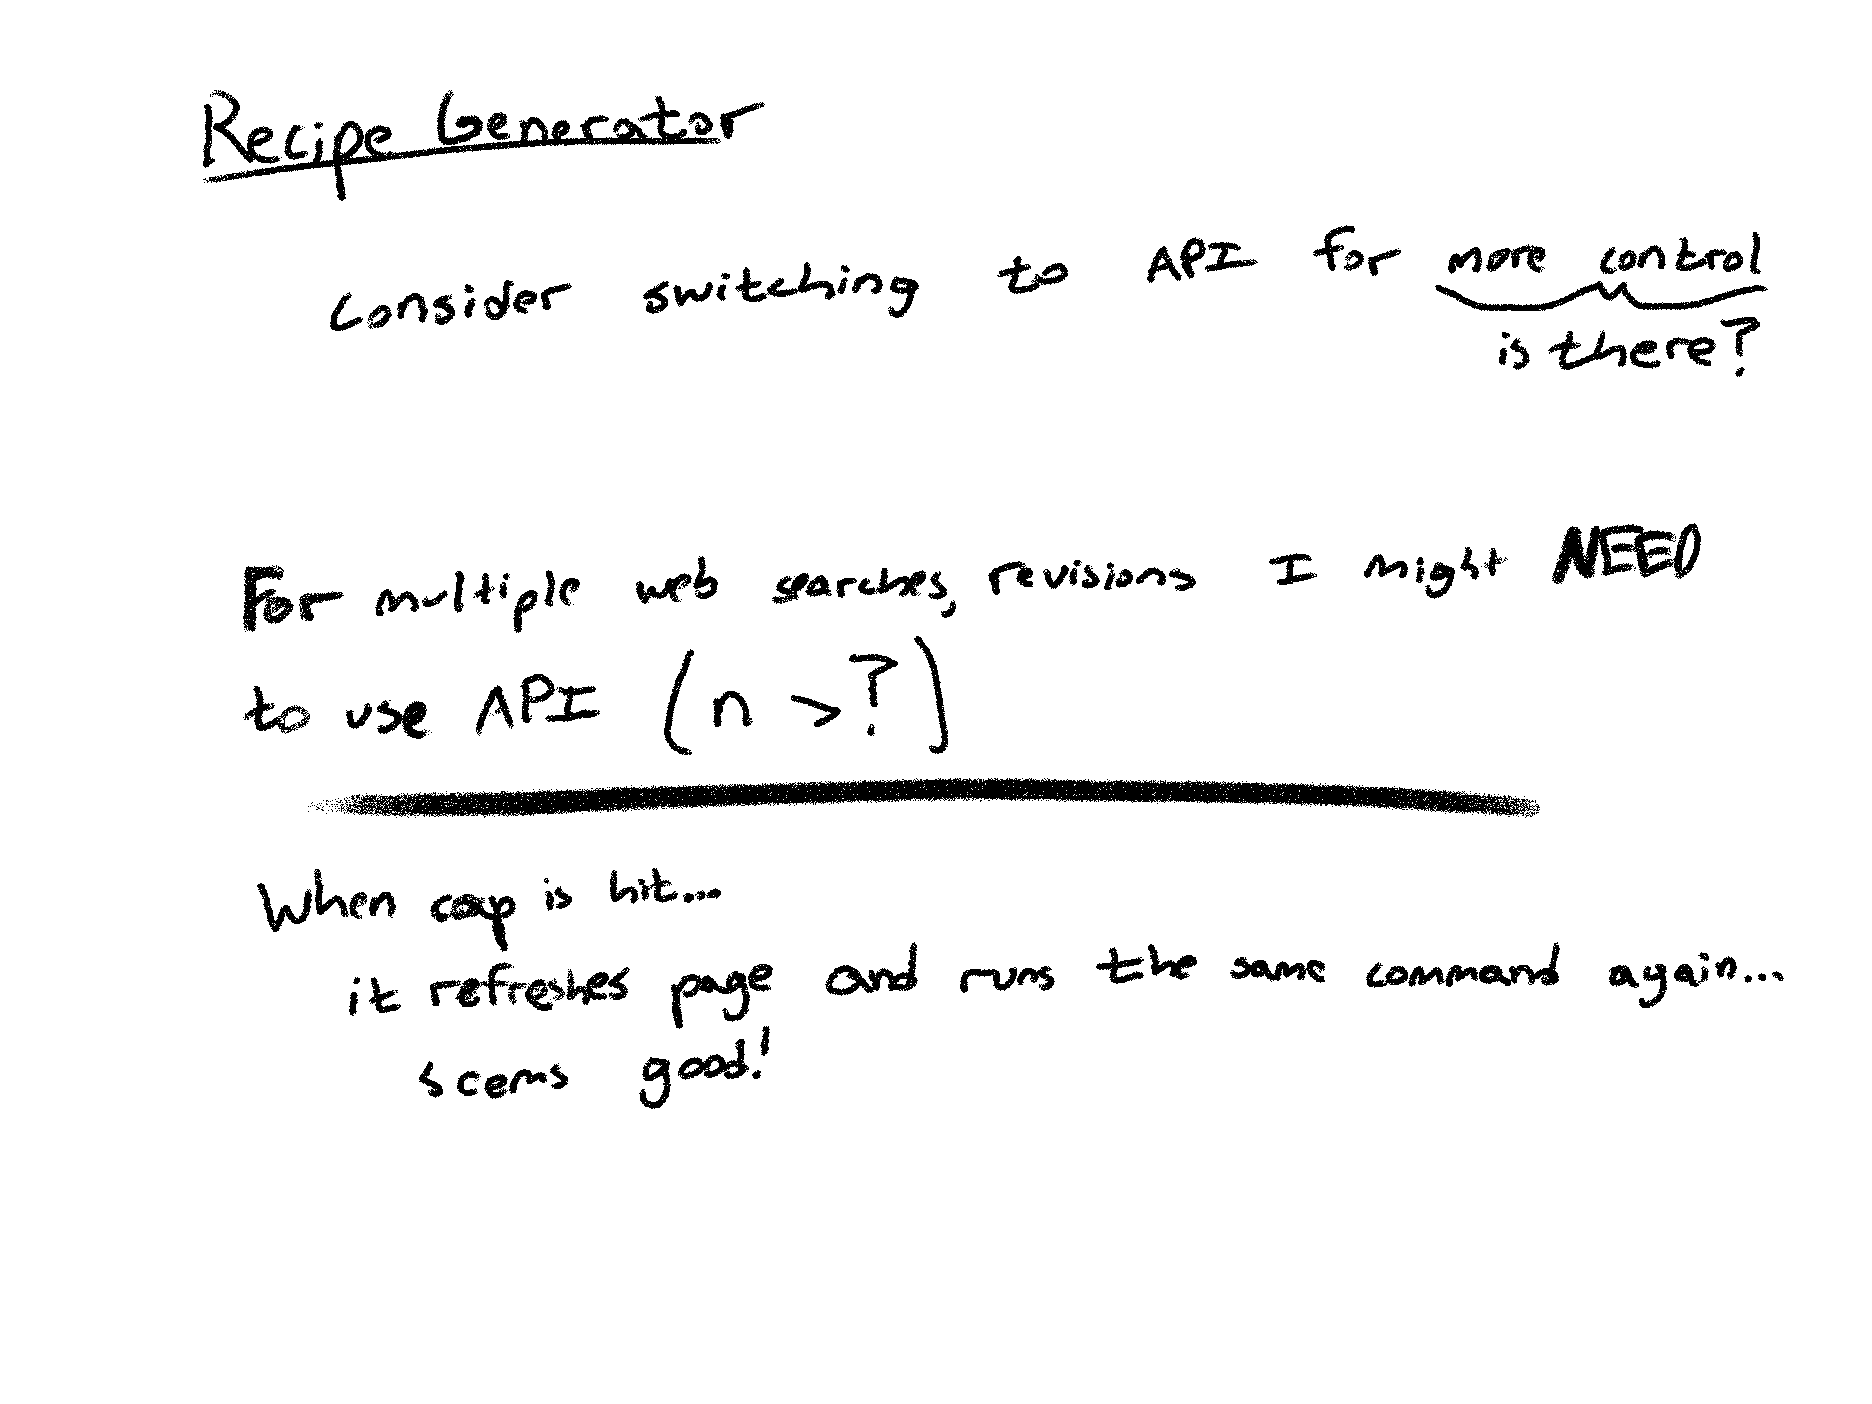 Recipe Generator
Consider switching to API for more control
is there?
For multiple web searches, revisions I might NEED
to use API (n > ?)
When cap is hit...
it refreshes page and runs the same command again...
seems good!